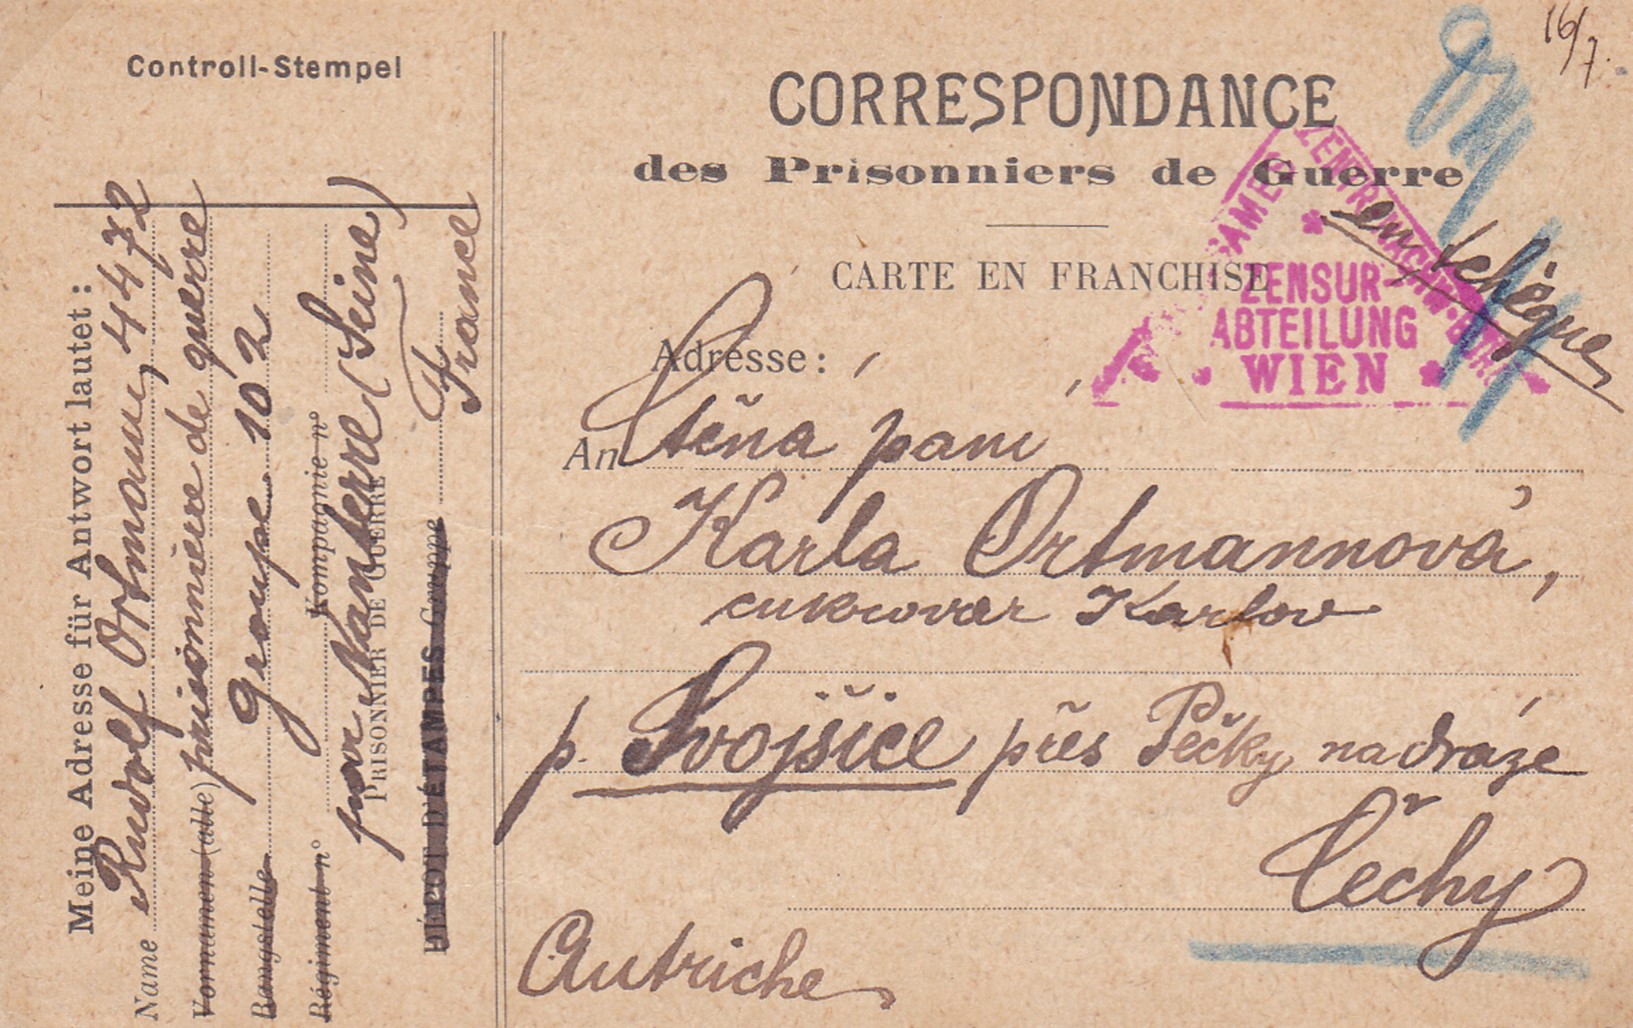 Controll-Stempel
Meine Adresse für Antwort lautet:
Name Rudolf Ortmann, 4472
Vornamen (alle) prisonnière de guerre
Rangstelle Groupe 102
Régiment n° Kompagnie n°
par Nanterre (Seine)
PRISONNIER DE GUERRE
France
DÉPOT D'ÉTAMPES Gruppe
16/7.
CORRESPONDANCE
des Prisonniers de Guerre
en tchèque
CARTE EN FRANCHISE
ZENSUR-
ABTEILUNG
WIEN
Adresse:
An Ctěná paní
Karla Ortmannová,
cukrovar Karlov
p. Svojšice přes Pečky na dráze
Čechy
Autriche